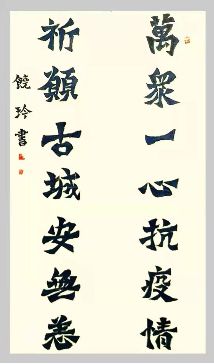 萬眾一心抗疫情
祈願古城安無恙
饒玲書